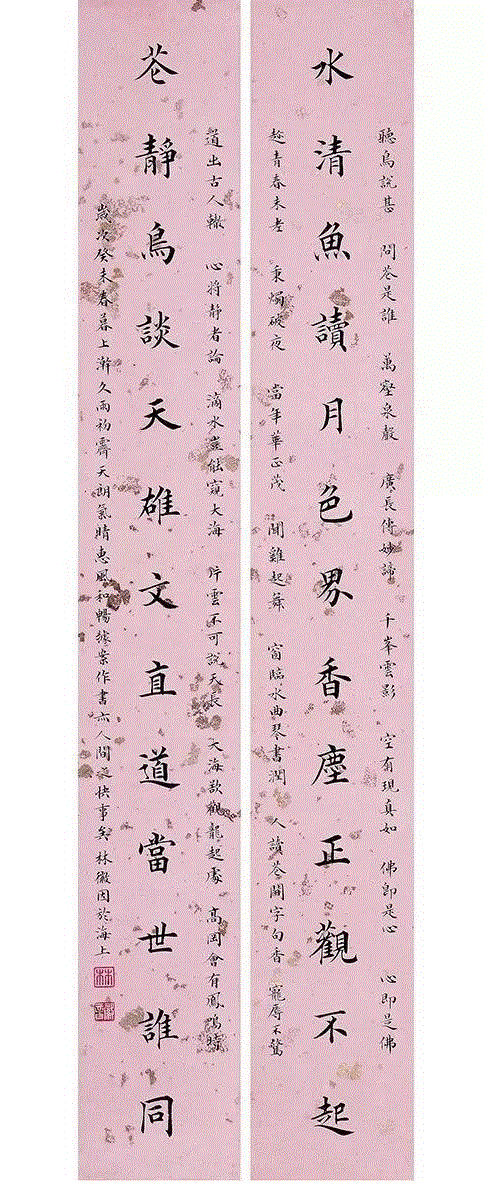 聽鳥說甚 問花是誰 萬壑泉聲 廣長傳妙諦 千峯雲影 空有現真如 佛即是心 心即是佛
水清魚讀月色界香塵正觀不起
趁青春未老 秉燭破夜 當年華正茂 聞雞起舞 窗臨水曲琴書潤 人讀花間字句香 寵辱不驚
道出古人轍 心將靜者論 滴水豈能窺大海 片雲不可說天長 大海欲觀龍起處 高岡會有鳳鳴時
花靜鳥談天雄文直道當世誰同
歲次癸未春暮上澣久雨初霽天朗氣晴惠風和暢據案作書亦人間一快事矣 林徽因於海上